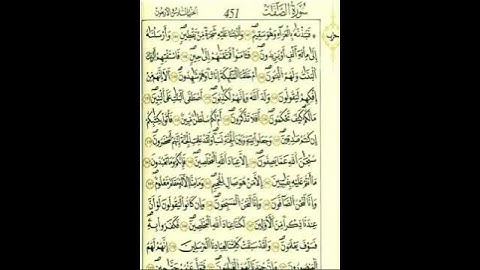 سُورَةُ الصَّافَّات
451
حزب
فَنَبَذْنَٰهُ بِالْعَرَاءِ وَهُوَ سَقِيمٌ ۝ وَأَنبَتْنَا عَلَيْهِ شَجَرَةً مِّن يَقْطِينٍ ۝ وَأَرْسَلْنَٰهُ
إِلَىٰ مِائَةِ أَلْفٍ أَوْ يَزِيدُونَ ۝ فَـَٔامَنُوا فَمَتَّعْنَٰهُمْ إِلَىٰ حِينٍ ۝ فَاسْتَفْتِهِمْ أَلِرَبِّكَ
الْبَنَاتُ وَلَهُمُ الْبَنُونَ ۝ أَمْ خَلَقْنَا الْمَلَٰئِكَةَ إِنَٰثًا وَهُمْ شَٰهِدُونَ ۝ أَلَا إِنَّهُم مِّنْ
إِفْكِهِمْ لَيَقُولُونَ ۝ وَلَدَ اللَّهُ وَإِنَّهُمْ لَكَٰذِبُونَ ۝ أَصْطَفَى الْبَنَاتِ عَلَى الْبَنِينَ ۝
مَا لَكُمْ كَيْفَ تَحْكُمُونَ ۝ أَفَلَا تَذَكَّرُونَ ۝ أَمْ لَكُمْ سُلْطَٰنٌ مُّبِينٌ ۝ فَأْتُوا بِكِتَٰبِكُمْ
إِن كُنتُمْ صَٰدِقِينَ ۝ وَجَعَلُوا بَيْنَهُ وَبَيْنَ الْجِنَّةِ نَسَبًا وَلَقَدْ عَلِمَتِ الْجِنَّةُ إِنَّهُمْ لَمُحْضَرُونَ ۝
سُبْحَٰنَ اللَّهِ عَمَّا يَصِفُونَ ۝ إِلَّا عِبَادَ اللَّهِ الْمُخْلَصِينَ ۝ فَإِنَّكُمْ وَمَا تَعْبُدُونَ ۝
مَا أَنتُمْ عَلَيْهِ بِفَٰتِنِينَ ۝ إِلَّا مَنْ هُوَ صَالِ الْجَحِيمِ ۝ وَمَا مِنَّا إِلَّا لَهُ مَقَامٌ مَّعْلُومٌ ۝
وَإِنَّا لَنَحْنُ الصَّافُّونَ ۝ وَإِنَّا لَنَحْنُ الْمُسَبِّحُونَ ۝ وَإِن كَانُوا لَيَقُولُونَ ۝ لَوْ أَنَّ
عِندَنَا ذِكْرًا مِّنَ الْأَوَّلِينَ ۝ لَكُنَّا عِبَادَ اللَّهِ الْمُخْلَصِينَ ۝ فَكَفَرُوا بِهِ
فَسَوْفَ يَعْلَمُونَ ۝ وَلَقَدْ سَبَقَتْ كَلِمَتُنَا لِعِبَادِنَا الْمُرْسَلِينَ ۝ إِنَّهُمْ لَهُمُ
الْمَنصُورُونَ ۝ وَإِنَّ جُندَنَا لَهُمُ الْغَٰلِبُونَ ۝ فَتَوَلَّ عَنْهُمْ حَتَّىٰ حِينٍ